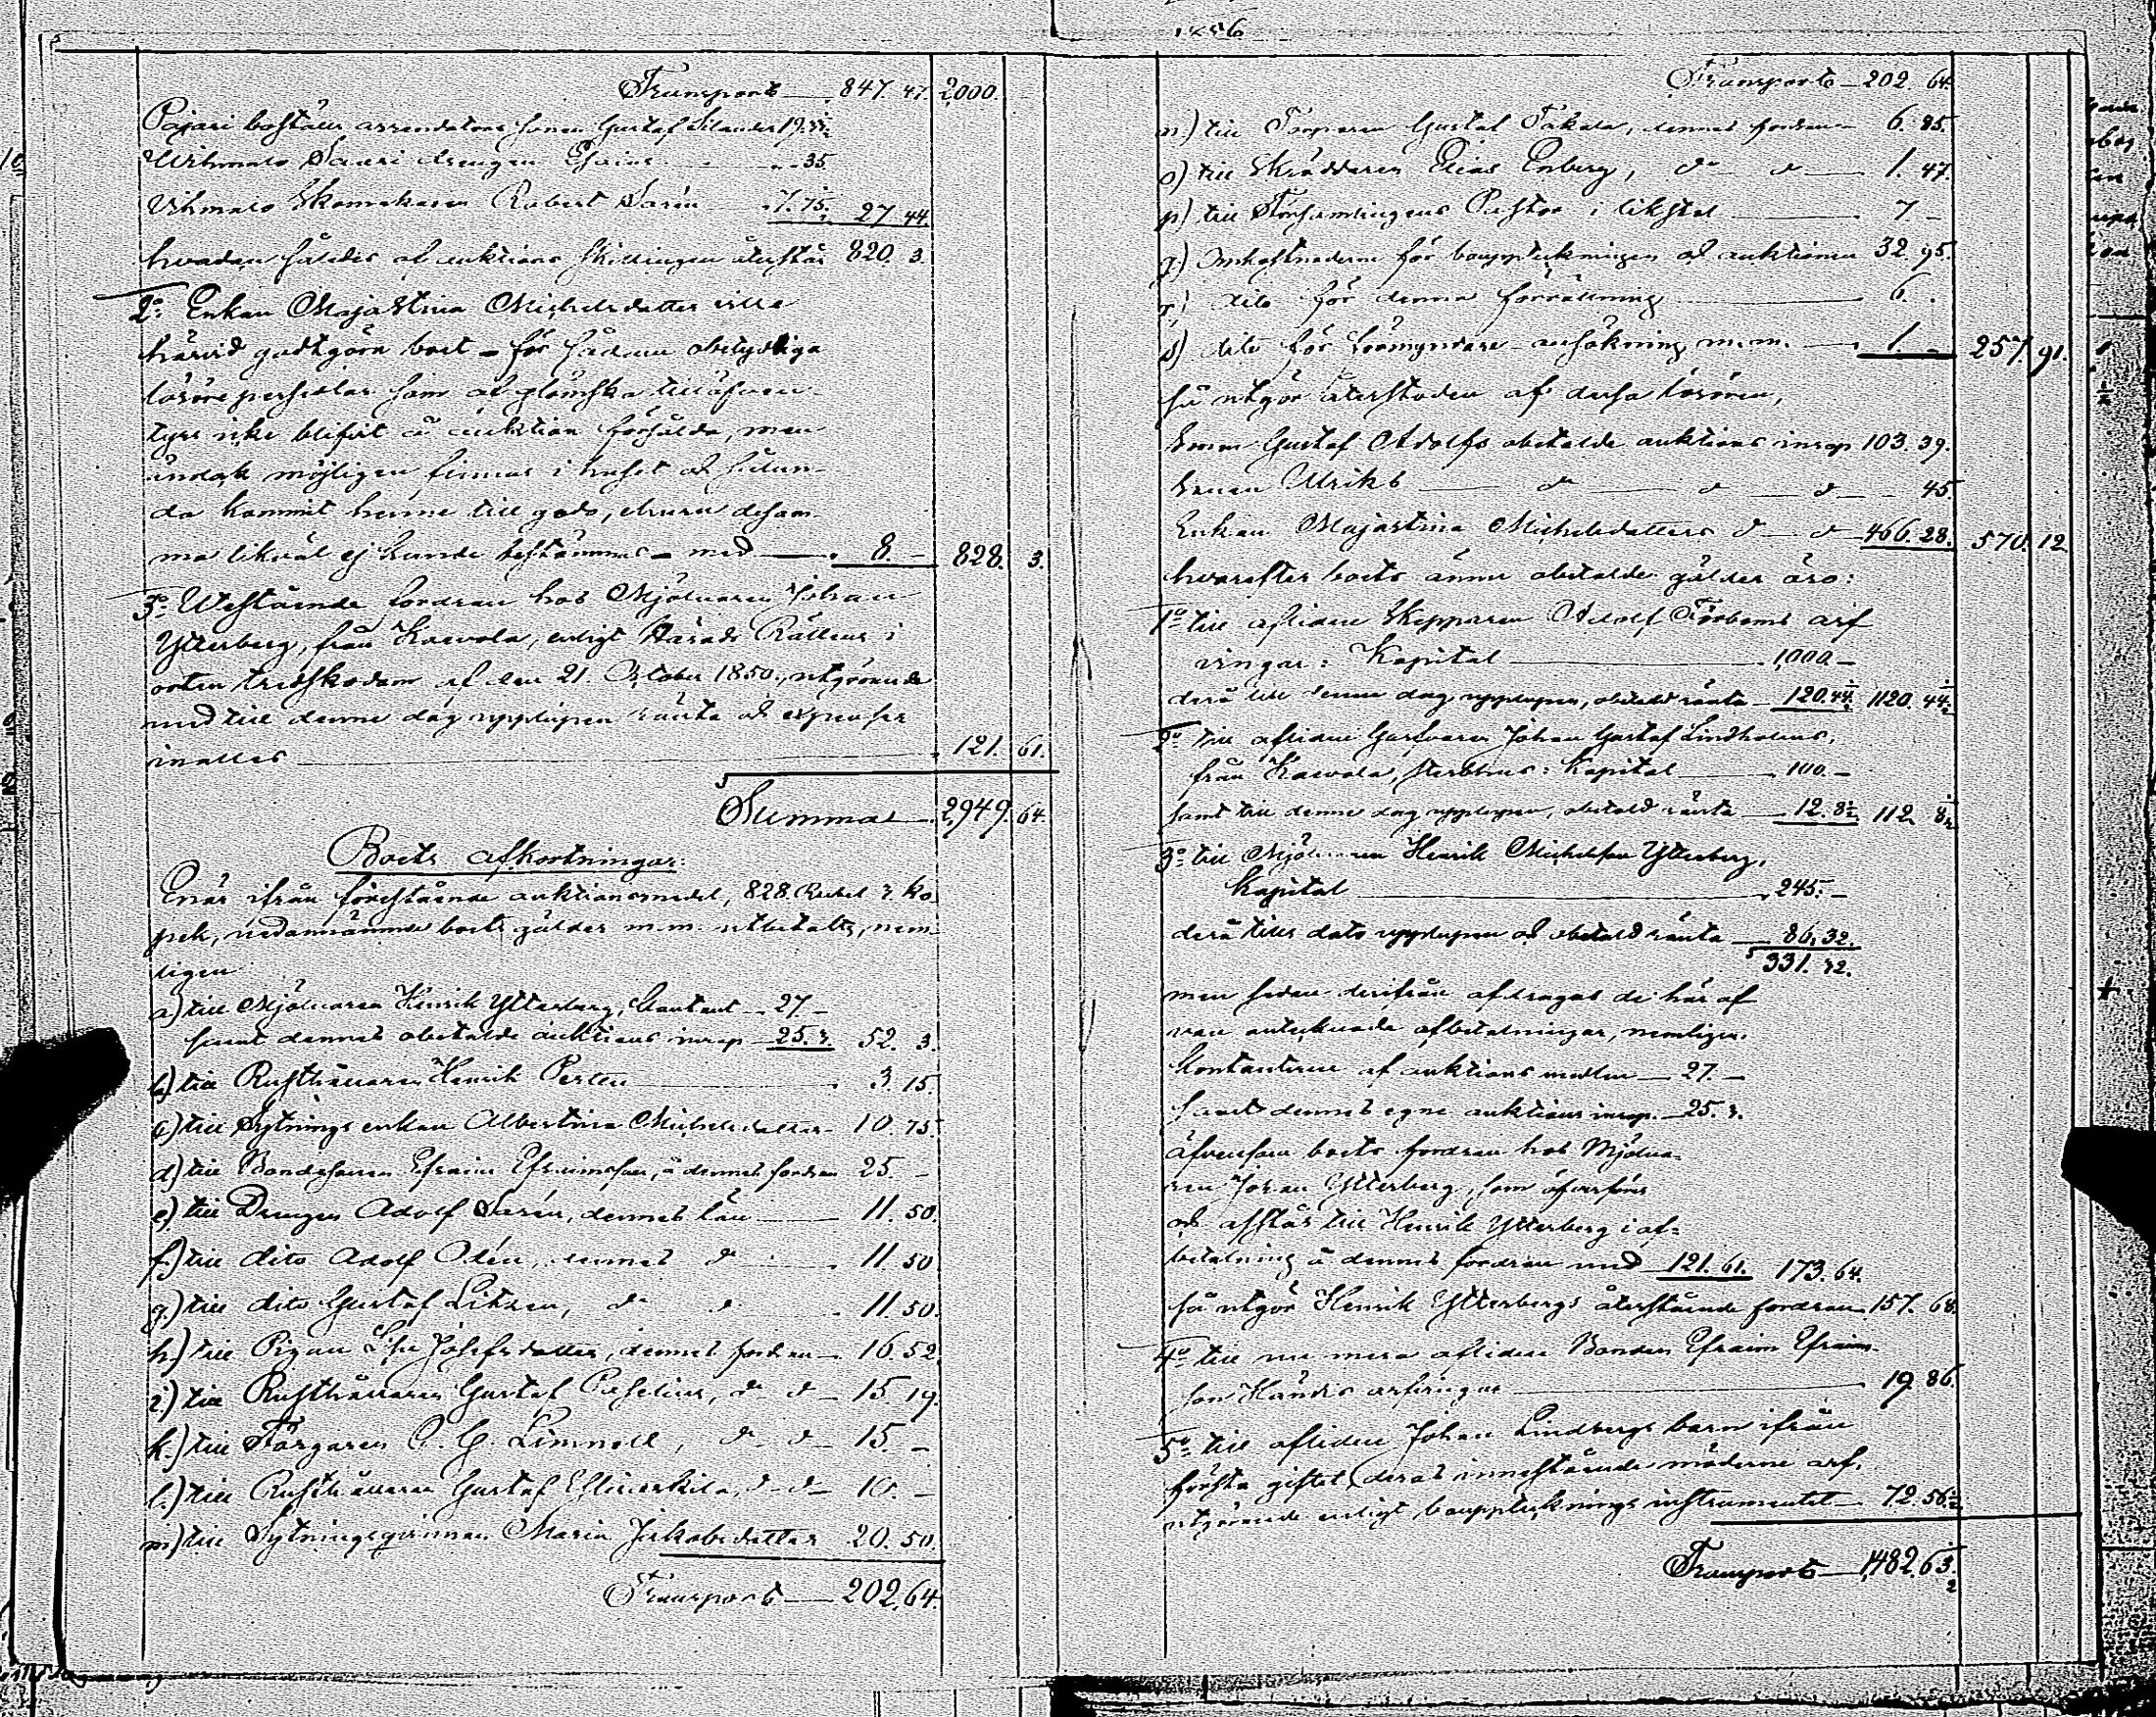 1856
Transport — 847. 47. 2,000.
Pajari boställs arrendatore sonen Gustaf 19.
Wihmalo Sauri drengen — 35.
Vihmalo Skomakaren Robert Sarin 7. 75. 27 44.
hvadan således af auktions skillingen återstår 820. 3.
2:o Enkan Maja Stina Michelsdotter ville
härvid godtgöra boet — för sådane obetydliga
lösöre persedlar som af glömska
icke blifvit å auktion försålda, men
ändock möjligen finnas i huset och sålun-
da kommit henne till godo, ehuru desam-
ma likväl ej kunde bestämmas — med — 8. — 828. 3.
3:o Utestående fordran hos Mjölnaren Johan
Ytterberg, från Kaevola, enligt Härads Rättens i
orten tredskodom af den 21. October 1850, utgörande
med till denne dag upplupen ränta och expenser
inalles — 121. 61.
Summa — 2,949. 64.
Boets afkortningar:
Enär ifrån förestående auktionsmedel, 828 Rubel 3 ko
pek, nedannämnde boets gälder m.m. utbetalts, nem-
ligen
a) till Mjölnaren Henrik Ytterberg, Contant — 27 —
samt dennes obetalde auktions inrop — 25. 3. 52. 3.
b) till Rusthållaren Henrik Perten — 3. 15.
c) till Sytnings enkan Albertina Michelsdotter — 10. 75.
d) till Bondesonen Efraim Efraimsson, å dennes fordran 25. —
e) till Drengen Adolf Sarén, dennes lön — 11. 50.
f) till dito Adolf Odén, dennes d:o — 11. 50
g) till dito Gustaf Litzen, d:o d:o — 11. 50.
h) till Pigan Lisa Josefsdotter, dennes fordran — 16. 52.
i) till Rusthållaren Gustaf Paselius, d:o d:o — 15. 19.
k) till Färgaren C. G. Limnell, d:o d:o — 15. —
l) till Rusthållaren Gustaf d:o d:o — 10. —
m) till Sytningsqvinnan Maria Jakobsdotter 20. 50.
Transport — 202. 64.
Transport — 202. 64.
n) till Torparen Gustaf Takala, dennes fordran — 6. 85.
o) till Skräddaren Elias Enberg, d:o d:o — 1. 47.
p) till Församlingens Pastor i likstol — 7 —
q) Omkostnaderne för bouppteckningen och auktionen 32. 95.
r) dito för denna förrättning — 6. .
s) dito för förmyndare ansökning m.m. — 1. — 257. 91.
så utgör återstoden af dessa lösören,
Sonen Gustaf Adolfs obetalde auktions inrop 103. 39.
Sonen Ulriks — d:o — d:o — d:o — 45
Enkan Maja Stina Michelsdotters d:o — d:o — 466. 28. 570. 12
hvarefter boets ännu obetalde gälder äro:
1:o till aflidne Skepparen Adolf Forboms arf
vingar: Kapital — 1,000 —
derå till denne dag upplupen, obetald ränta — 120. 44 1/2 1120. 44 1/2
2:o till aflidne Garfvaren Johan Gustaf Lindholms,
från Kaevola, sterbhus: Kapital — 100. —
samt till denne dag upplupen, obetald ränta — 12. 8 1/2 112. 8 1/2
3:o till Mjölnaren Henrik Michelsson Ytterberg,
Kapital — 245. —
derå till dato upplupen och obetald ränta — 86. 32.
331. 32.
men sedan derifrån afdragas de här of
van antecknade afbetalningar, nemligen:
Kontanterne af auktions medlen — 27. —
samt dennes egne auktions inrop. — 25. 3.
äfvensom boets fordran hos Mjölna-
ren Johan Ytterberg, som öfverföres
och afstås till Henrik Ytterberg i af-
betalning å dennes fordran med — 121. 61. 173. 64.
så utgör Henrik Ytterbergs återstående fordran — 157. 68.
4:o till nu mera aflidne Bonden Efraim Efraims-
son arfvingar — 19. 86.
5:o till aflidne Johan Lindbergs barn ifrån
första giftet, deras innestående möderne arf,
utgörande enligt bouppteknings instrumentet — 72. 56 1/2
Transport — 1,482. 63 1/2